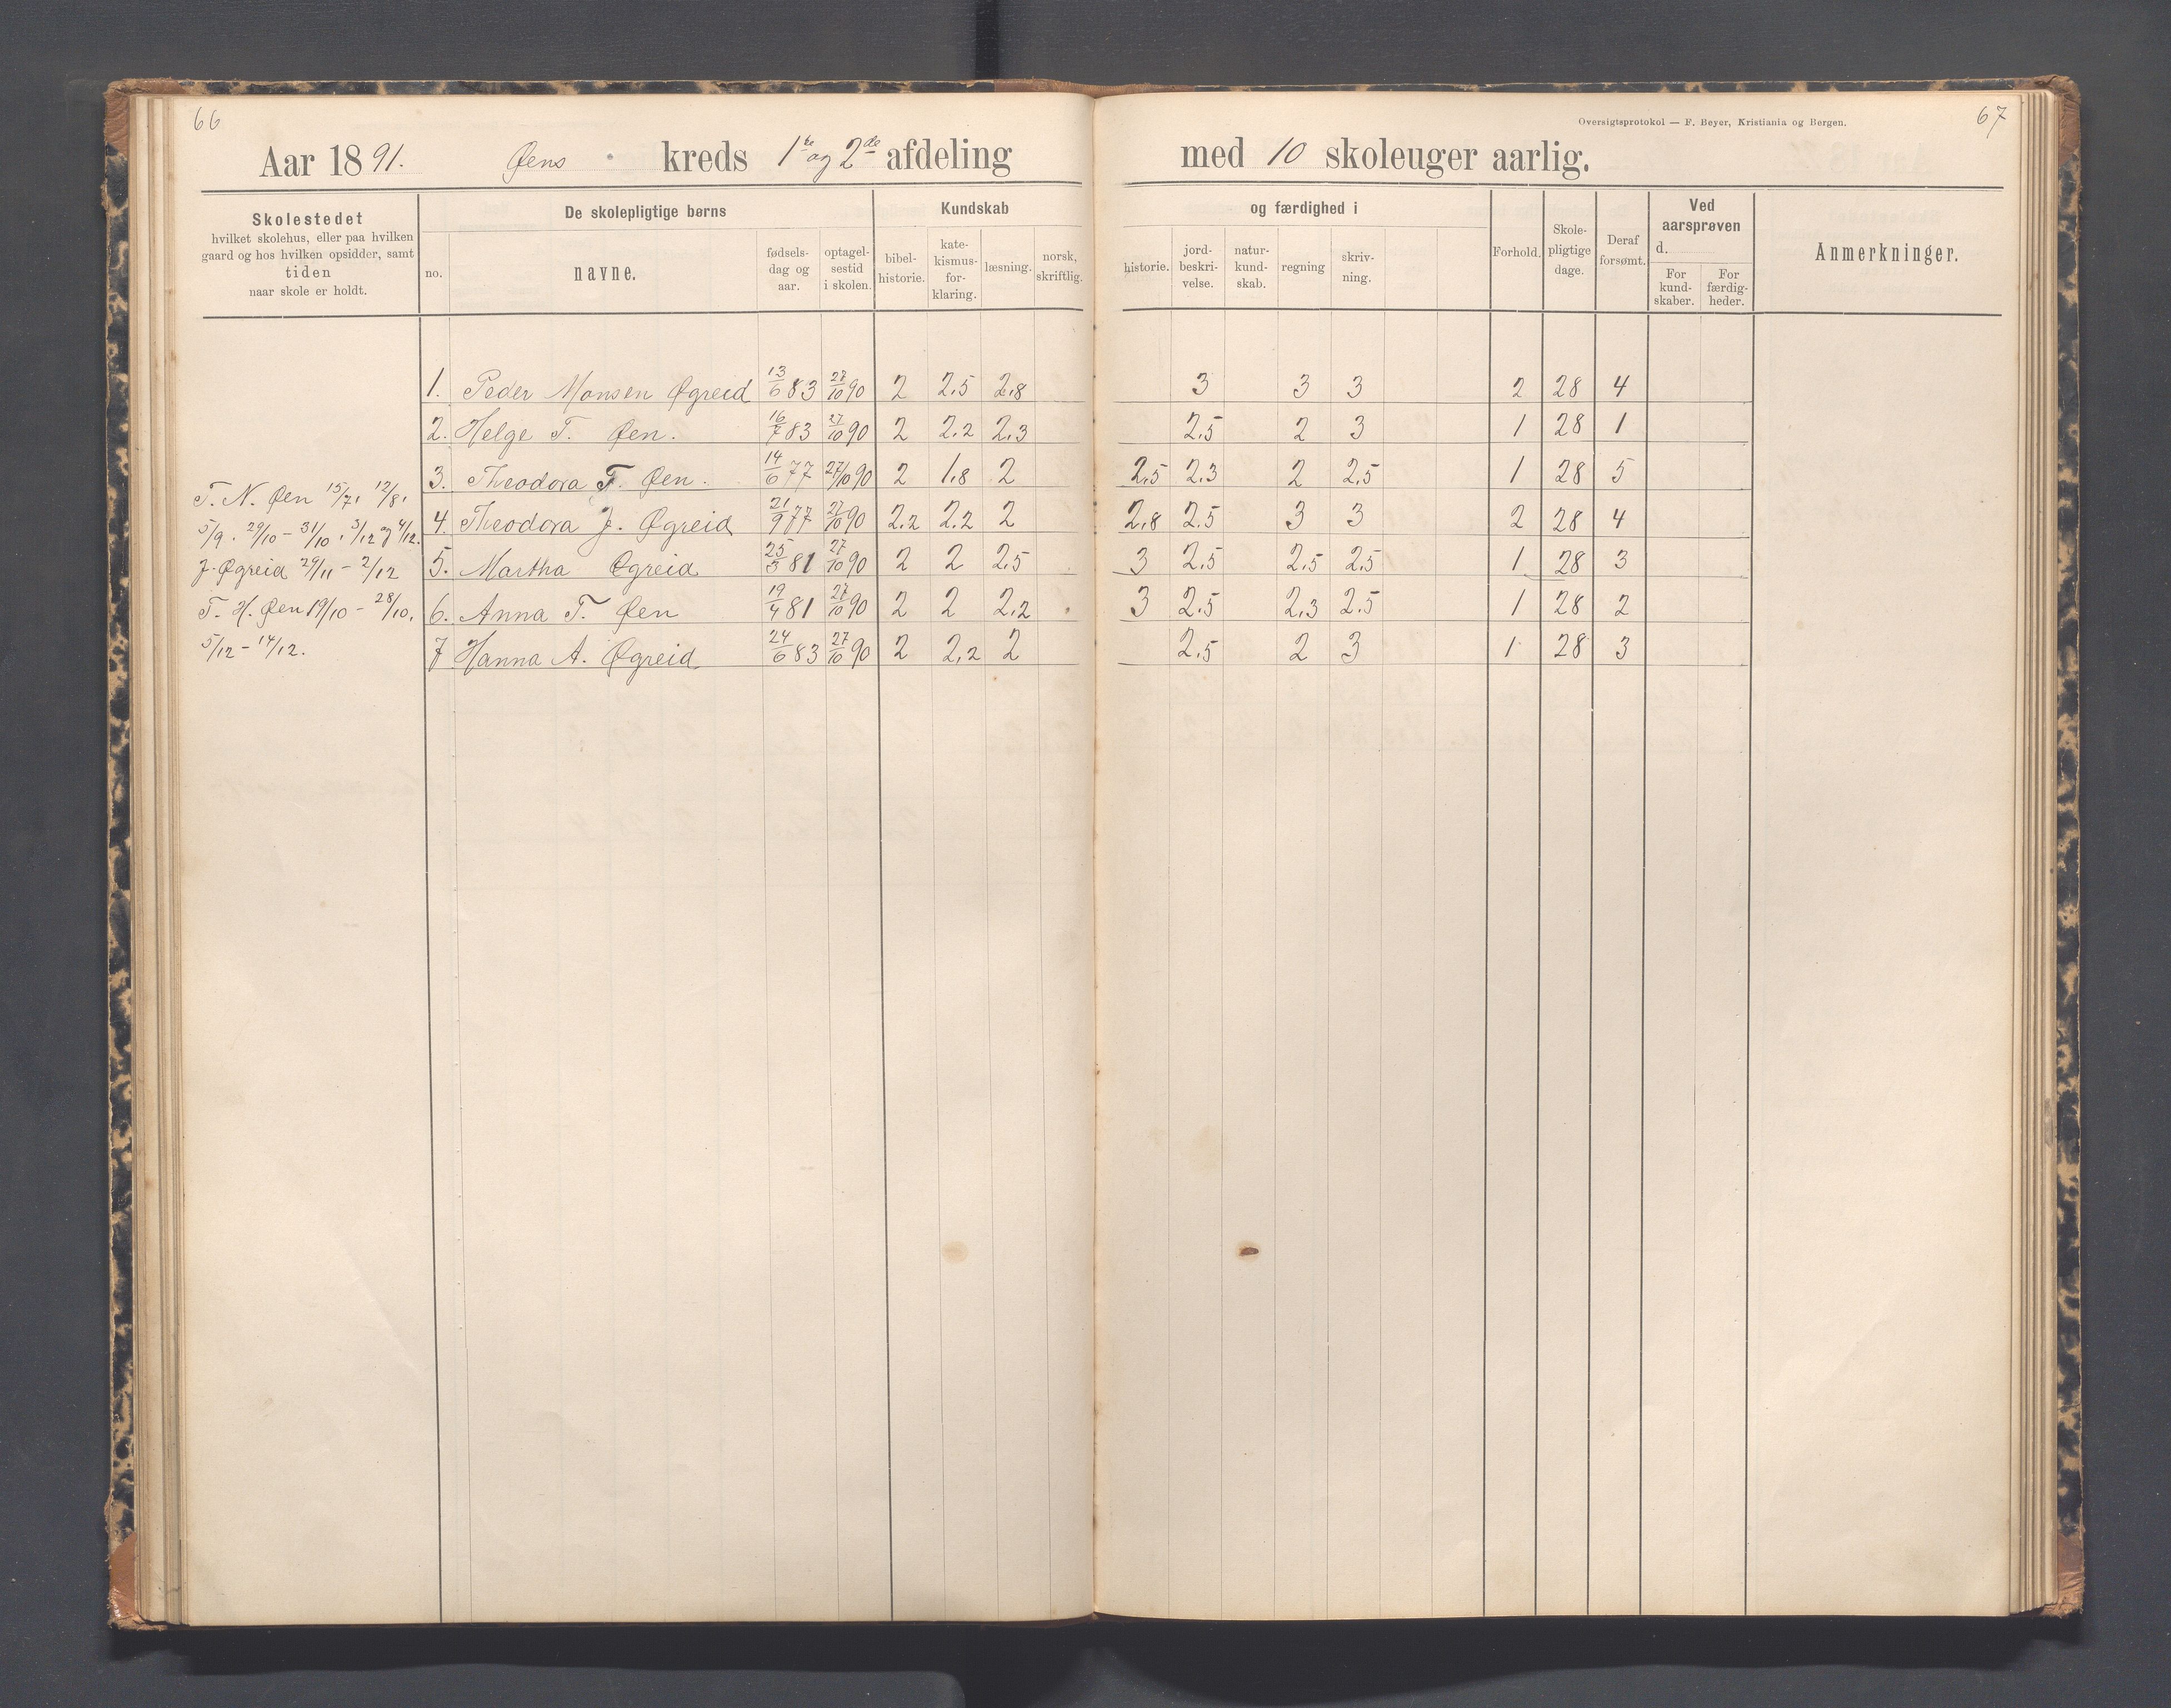 66
67
Oversigtsprotokol — F. Beyer, Kristiania og Bergen.
Aar 1891. Øens kreds 1ste og 2den afdeling med 10 skoleuger aarlig.
Skolestedet
hvilket skolehus, eller paa hvilken
gaard og hos hvilken opsidder, samt
tiden
naar skole er holdt.
De skolepligtige børns
no.
navne.
fødsels-
dag og
aar.
optagel-
sestid
i skolen.
Kundskab
bibel-
historie.
kate-
kismus-
for-
klaring.
læsning.
norsk,
skriftlig.
og færdighed i
historie.
jord-
beskri-
velse.
natur-
kund-
skab.
regning
skriv-
ning.
Forhold.
Skole-
pligtige
dage.
Deraf
forsømt.
Ved
aarsprøven
d.
For
kund-
skaber.
For
færdig-
heder.
Anmerkninger.
1. Peder Monsen Øgreid 13/6 83 27/10 90 2 2.5 2.8 3 3 3 2 28 4
2. Helge T. Øen. 16/7 83 27/10 90 2 2.2 2.3 2.5 2 3 1 28 1
3. Theodora T. Øen. 14/6 77 27/10 90 2 1.8 2 2.5 2.3 2 2.5 1 28 5
4. Theodora J. Øgreid 21/9 77 27/10 90 2.2 2.2 2 2.8 2.5 3 3 2 28 4
5. Martha Øgreid 25/3 81 27/10 90 2 2 2.5 3 2.5 2.5 2.5 1 28 3
6. Anna T. Øen 19/4 81 27/10 90 2 2 2.2 3 2.5 2.3 2.5 1 28 2
7 Hanna A. Øgreid 24/6 83 27/10 90 2 2.2 2 2.5 2 3 1 28 3
T. N. Øen 15/7, 12/8,
5/9. 29/10 – 31/10, 3/12 og 4/12.
J. Øgreid 29/11 – 2/12
T. H. Øen 19/10 – 28/10,
5/12 – 14/12.